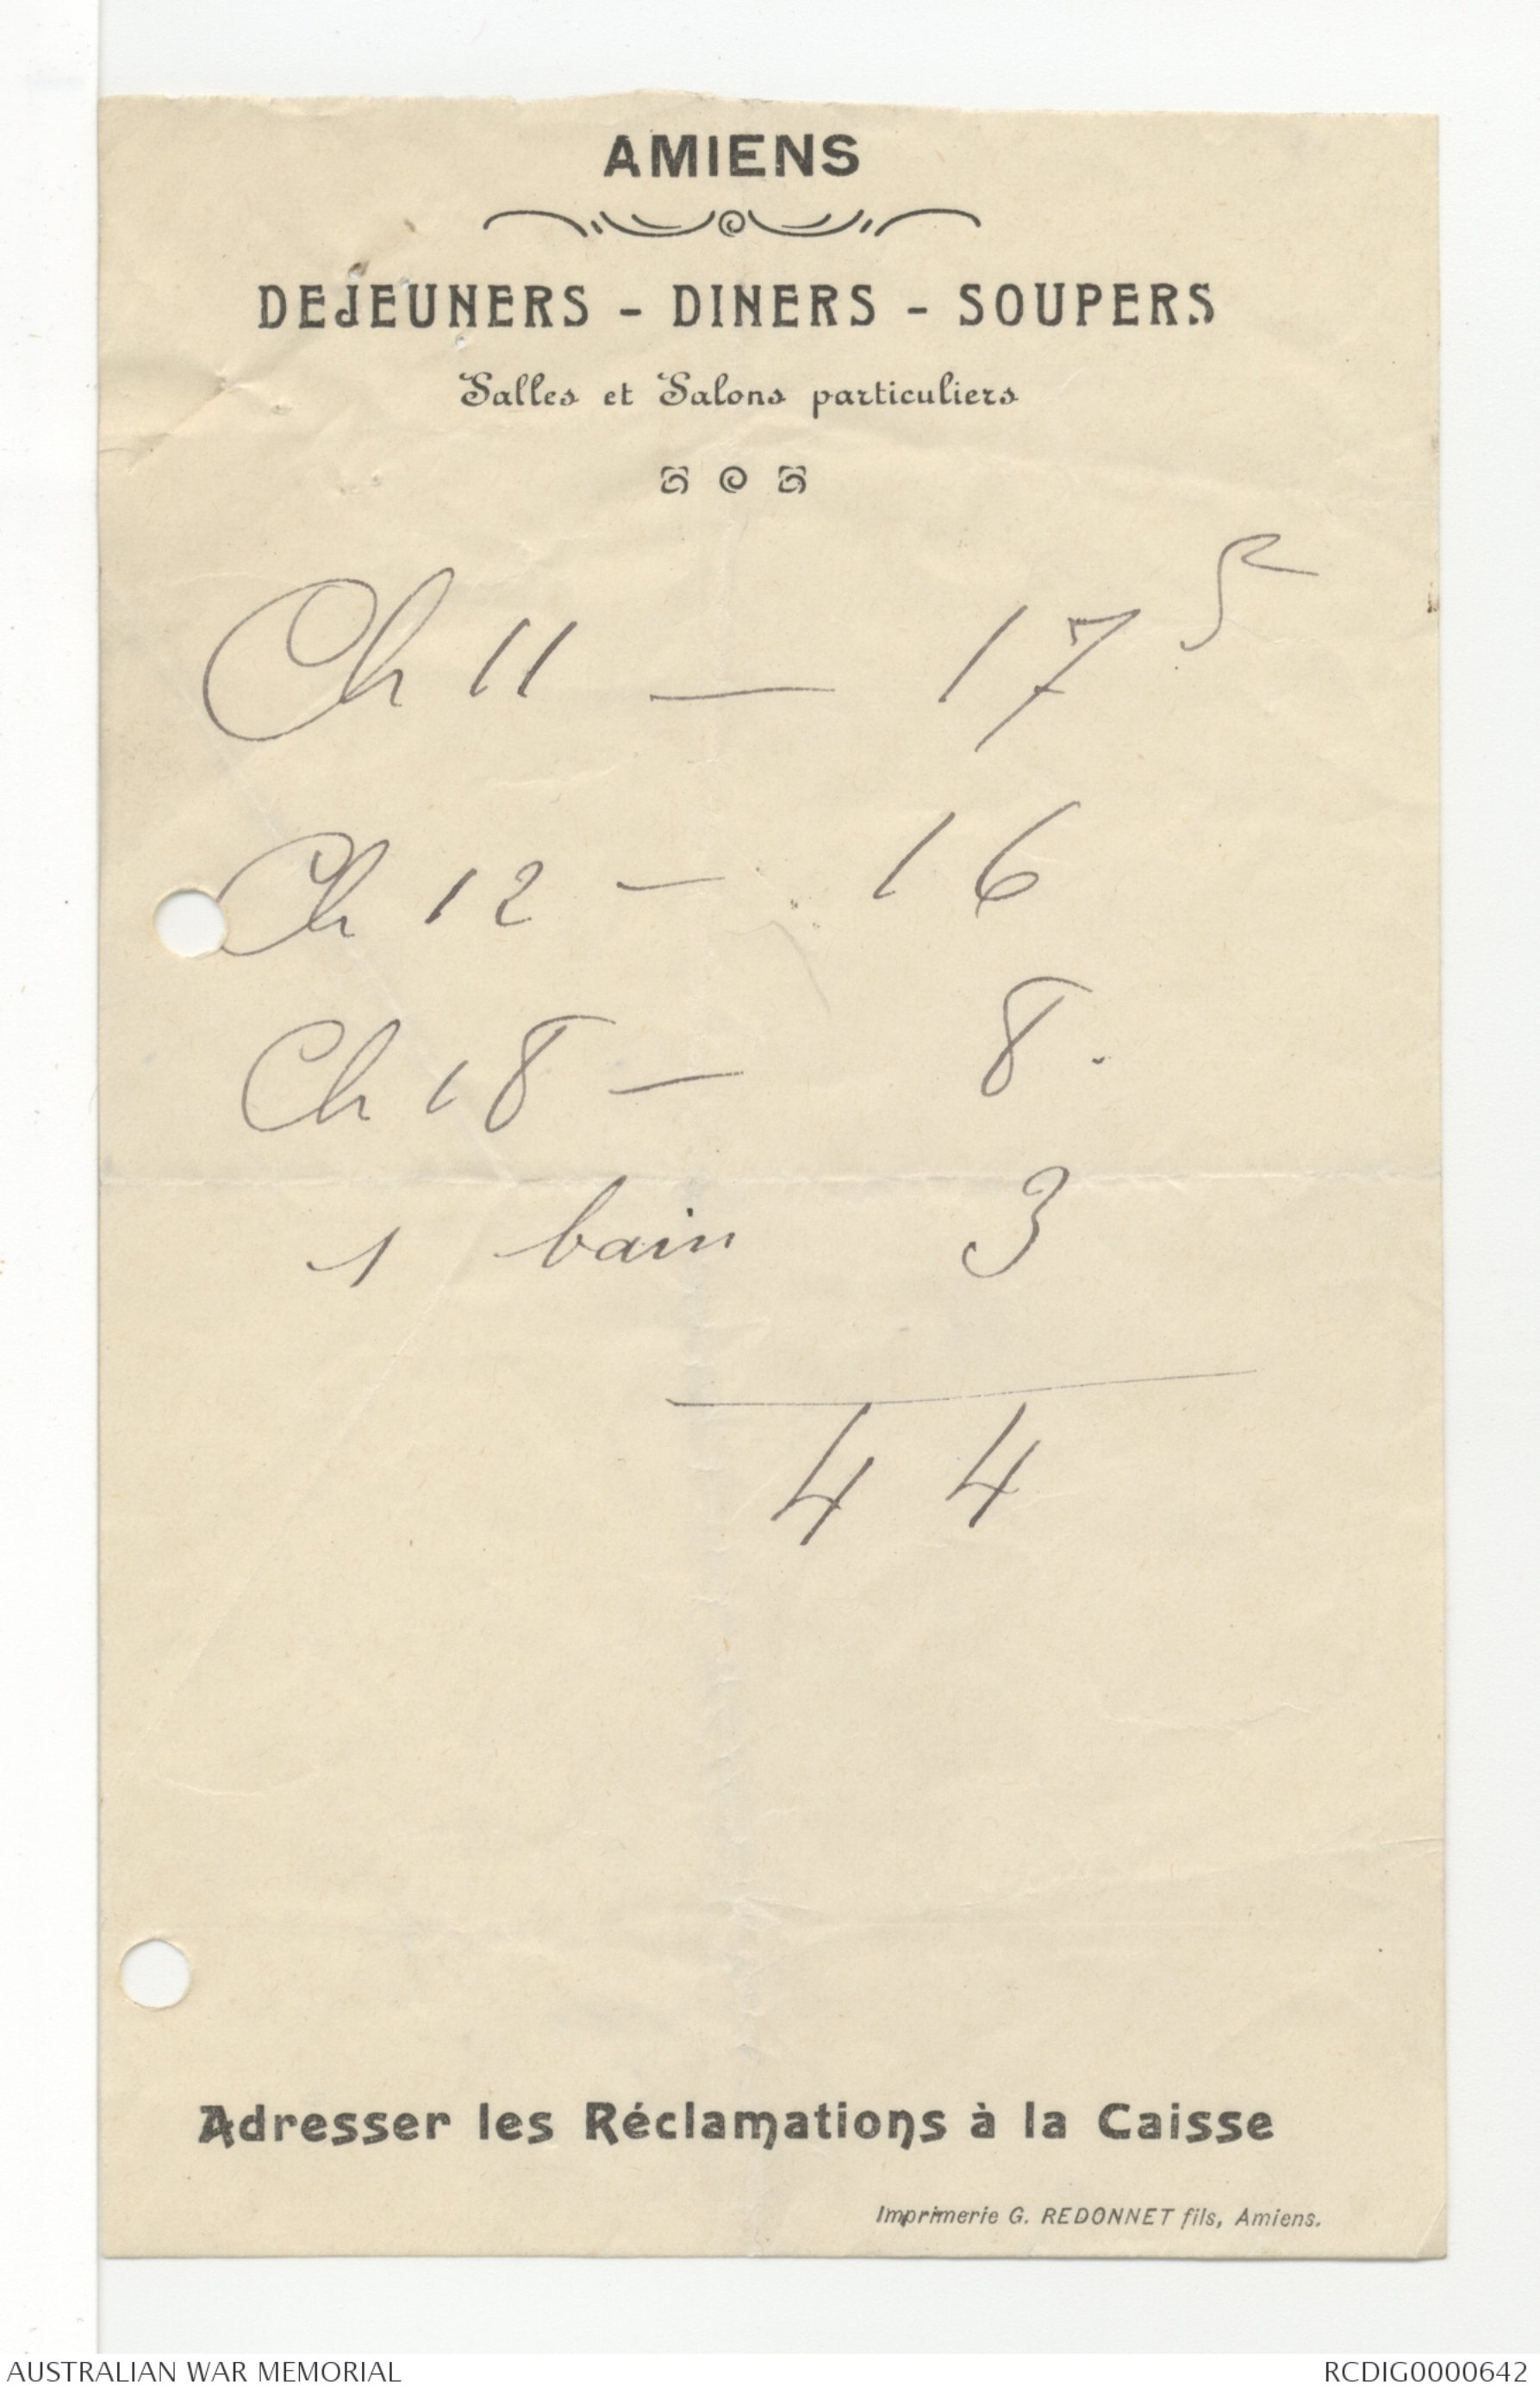 AMIENS
DEJEUNERS - DINERS - SOUPERS
Salles et Salons particuliers
Ch 11 — 17 5
Ch 12 — 16
Ch 18 — 8.
1 bain 3
44
Adresser les Réclamations à la Caisse
Imprimerie G. REDONNET fils, Amiens.
AUSTRALIAN WAR MEMORIAL RCDIG0000642